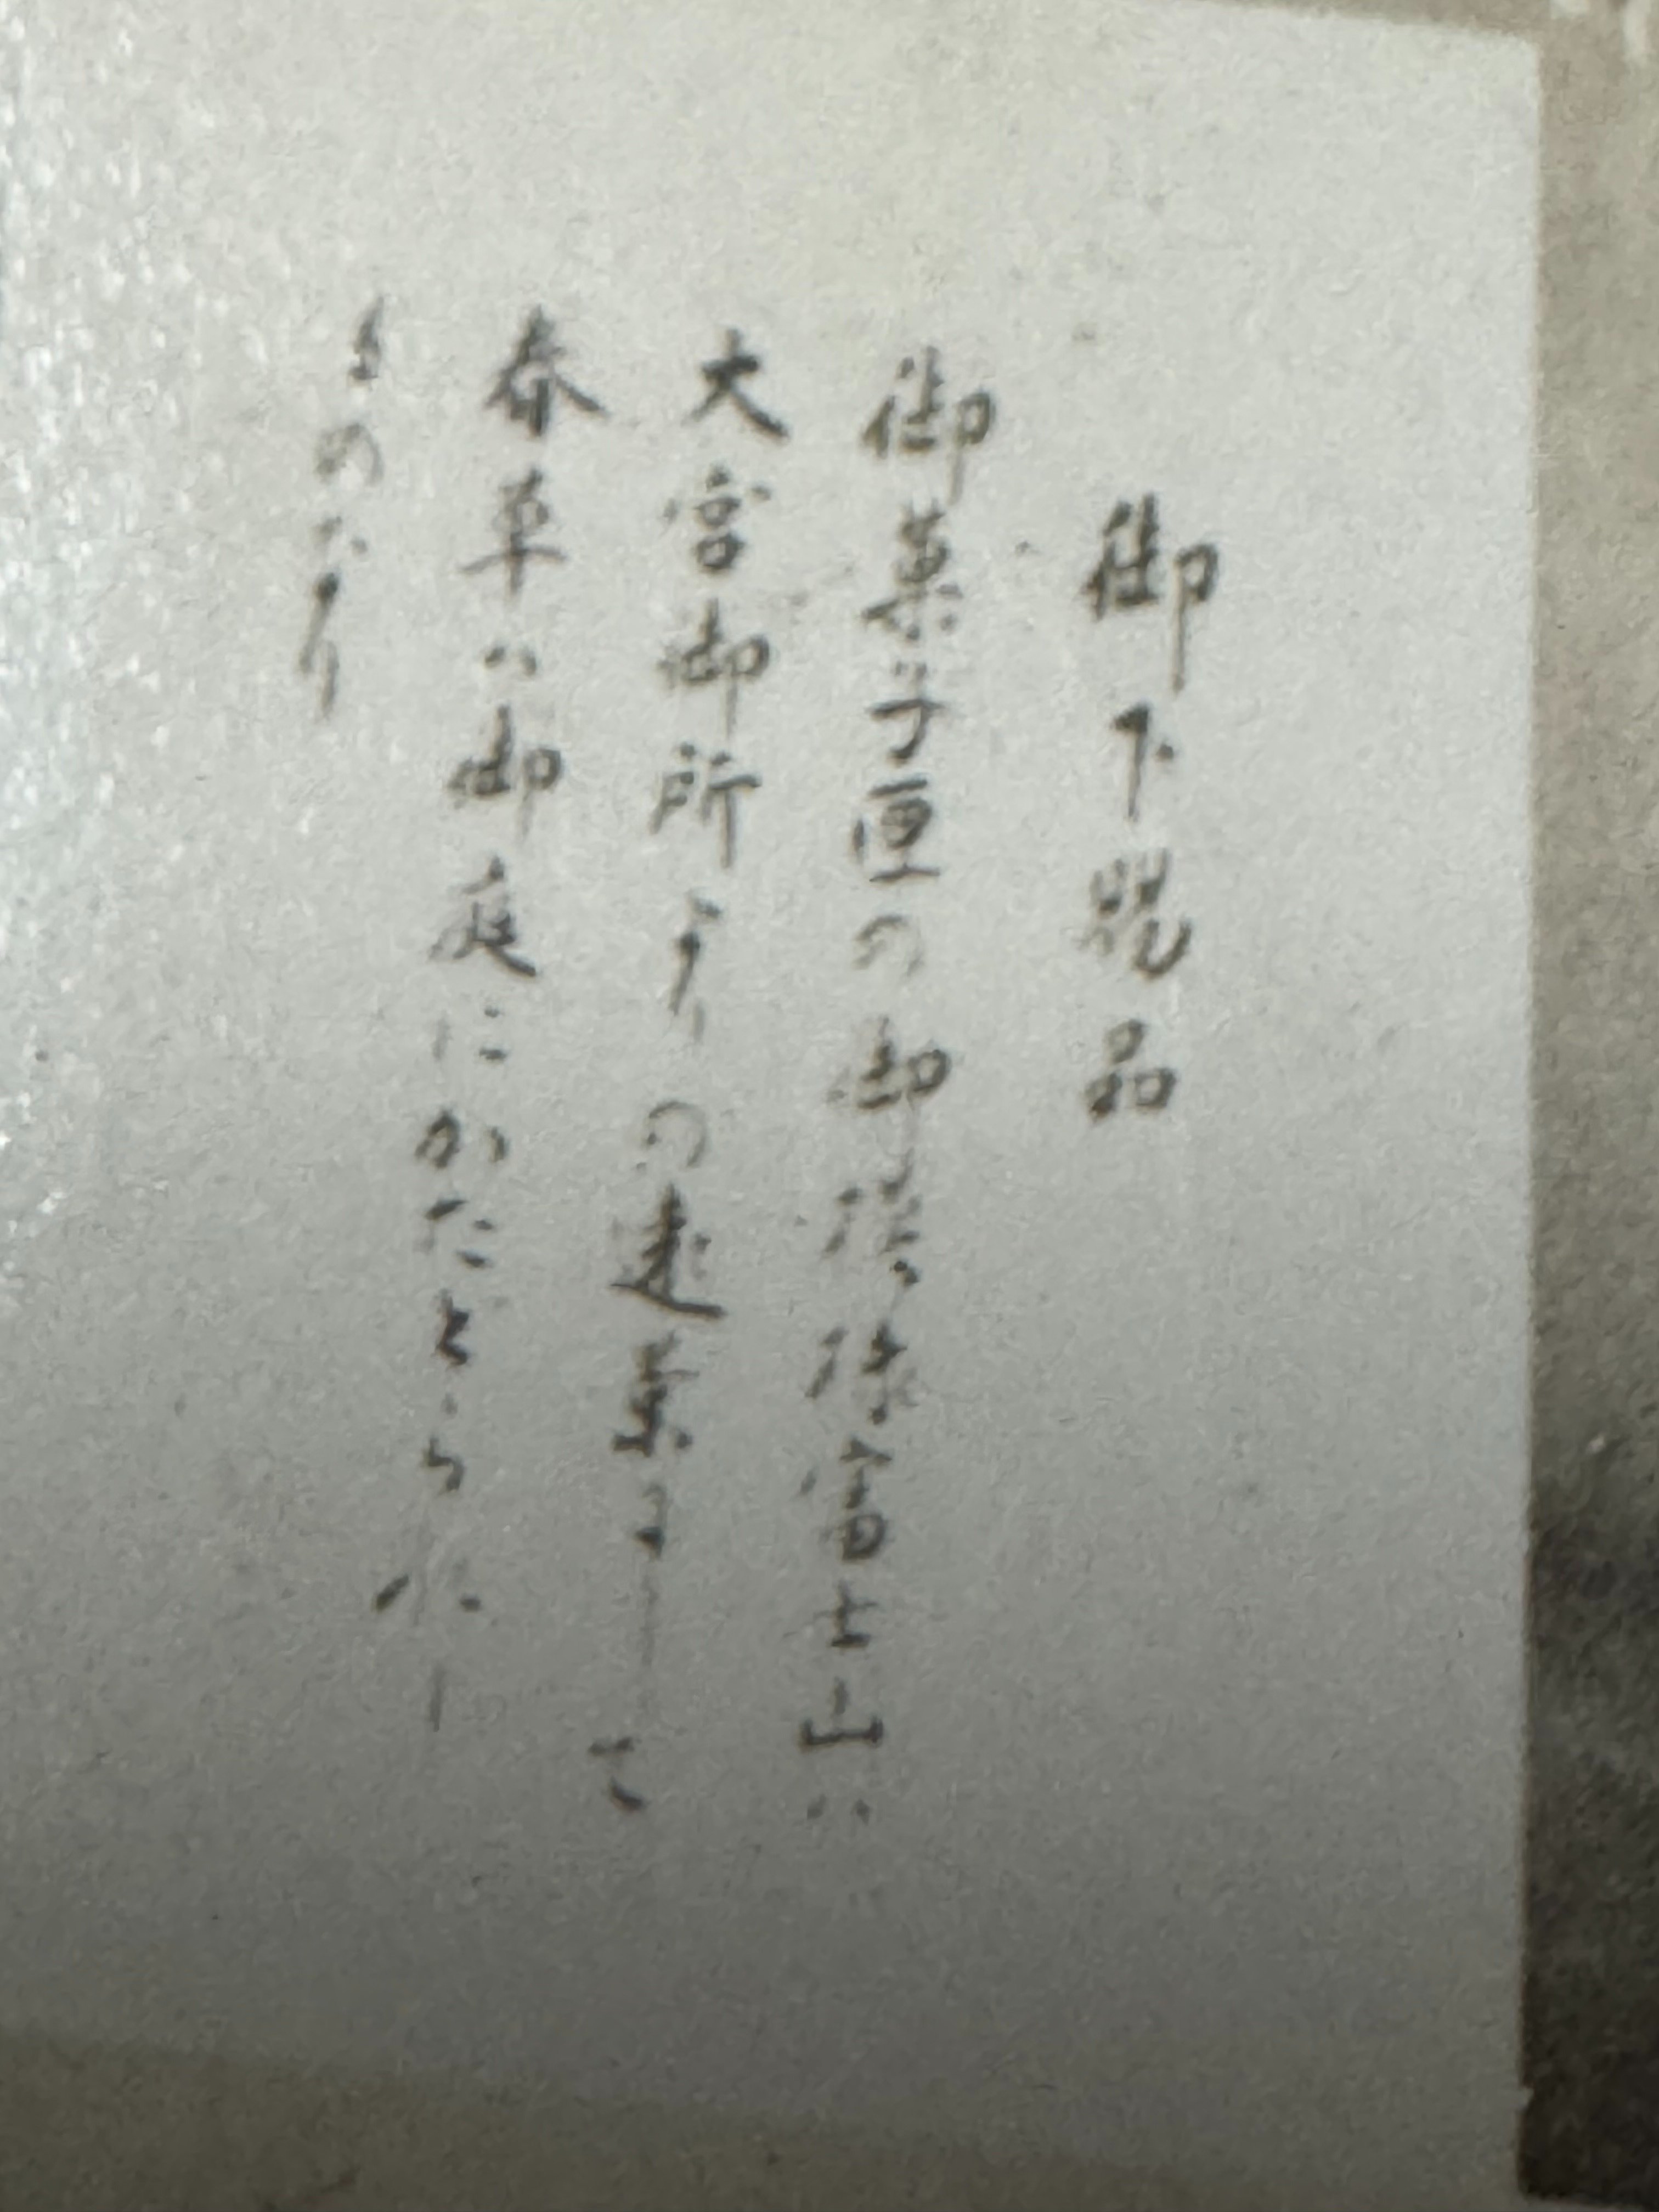 御下賜品
御菓子匣の御模様富士山ハ
大宮御所よりの遠景にして
春草ハ御庭にかたとられし
ものなり